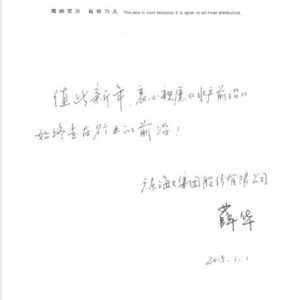 海纳百川 有容乃大 The sea is vast because it is open to all river attributaries.
值此新年,衷心祝愿《水产前沿》
始终走在行业的前沿!
广东海大集团股份有限公司
薛华
2015.1.1